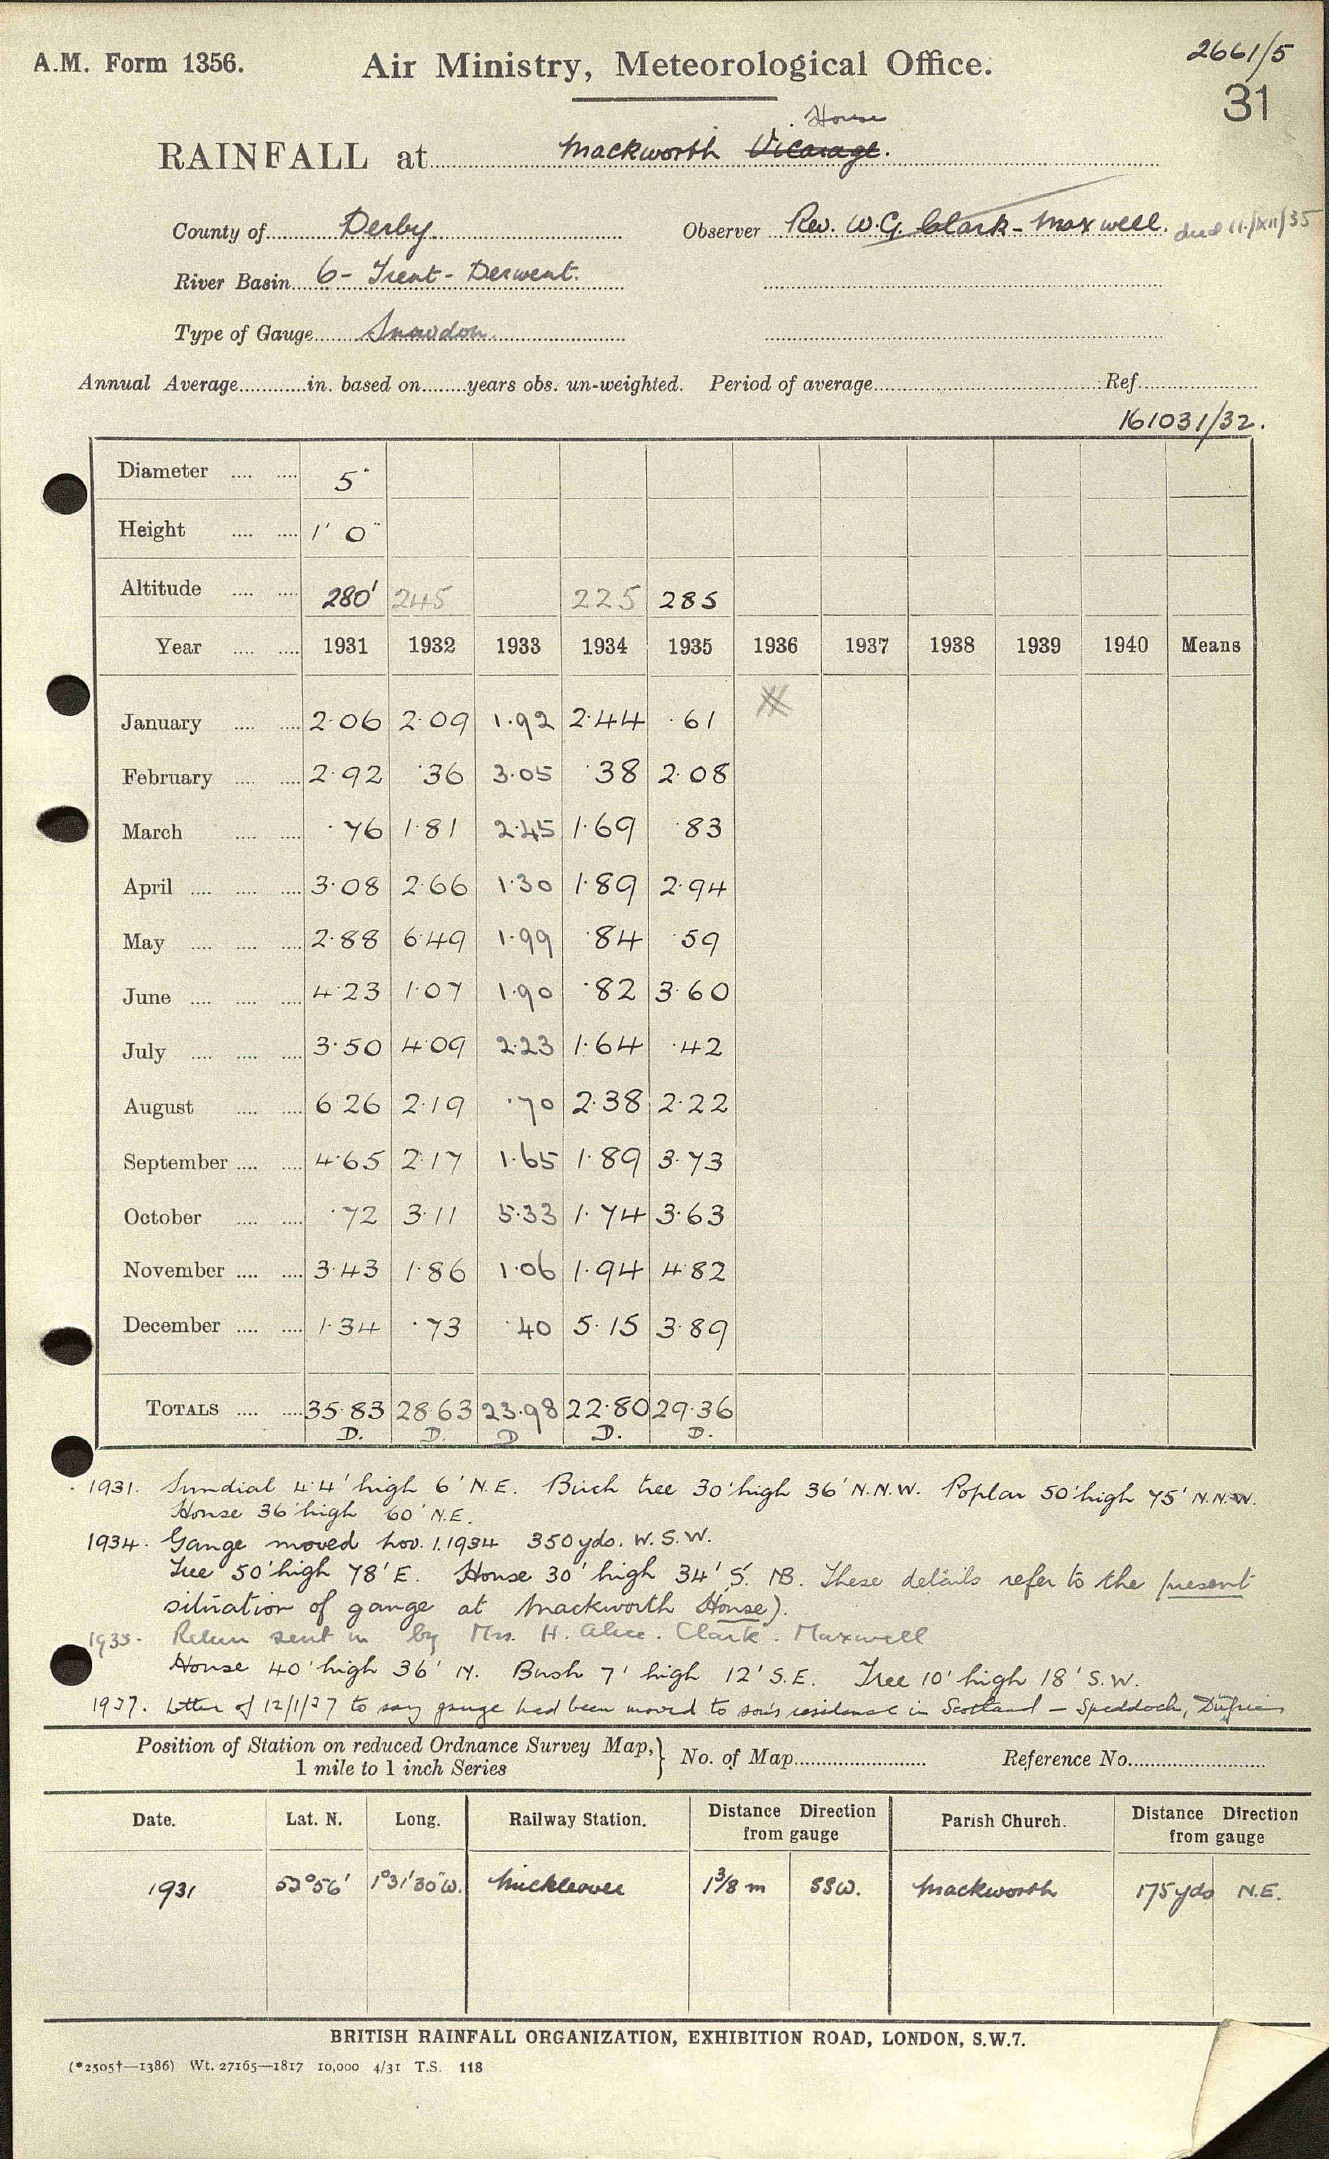 A.M. Form 1356. Air Ministry, Meteorological Office. 2661/5
31
House
RAINFALL at Mackworth Vicarage.
County of Derby. Observer Rev. W.G. Clark-Maxwell. died 11/XII/35
River Basin 6 - Trent - Derwent.
Type of Gauge Snowdon.
Annual Average in. based on years obs. un-weighted. Period of average Ref.
161031/32.
Diameter 5"
Height 1' 0"
Altitude 280' 245 225 285
Year 1931 1932 1933 1934 1935 1936 1937 1938 1939 1940 Means
January 2.06 2.09 1.92 2.44 .61
February 2.92 .36 3.05 .38 2.08
March .76 1.81 2.45 1.69 .83
April 3.08 2.66 1.30 1.89 2.94
May 2.88 6.49 1.99 .84 .59
June 4.23 1.07 1.90 .82 3.60
July 3.50 4.09 2.23 1.64 .42
August 6.26 2.19 .70 2.38 2.22
September 4.65 2.17 1.65 1.89 3.73
October .72 3.11 5.33 1.74 3.63
November 3.43 1.86 1.06 1.94 4.82
December 1.34 .73 .40 5.15 3.89
TOTALS 35.83 28.63 23.98 22.80 29.36
D. D. D D. D.
1931. Sundial 4.4' high 6' N.E. Birch tree 30' high 36' N.N.W. Poplar 50' high 75' N.N.W.
House 36' high 60' N.E.
1934. Gauge moved Nov. 1. 1934 350 yds. W.S.W.
Tree 50' high 78' E. House 30' high 34' S. NB. These details refer to the present
situation of gauge at Mackworth House).
1935. Return sent in by Mrs. H. Alice. Clark. Maxwell
House 40' high 36' N. Bush 7' high 12' S.E. Tree 10' high 18' S.W.
1937. Letter of 12/1/37 to say gauge had been moved to son's residence in Scotland - Speddoch, Dumfries
Position of Station on reduced Ordnance Survey Map, } No. of Map Reference No.
1 mile to 1 inch Series
Date. Lat. N. Long. Railway Station. Distance Direction from gauge Parish Church. Distance Direction from gauge
1931 52°56' 1°31'30"W. Mickleover 1 3/8 m SSW. Mackworth 175 yds N.E.
BRITISH RAINFALL ORGANIZATION, EXHIBITION ROAD, LONDON, S.W.7.
(*2505†—1386) Wt. 27165—1817 10,000 4/31 T.S. 118